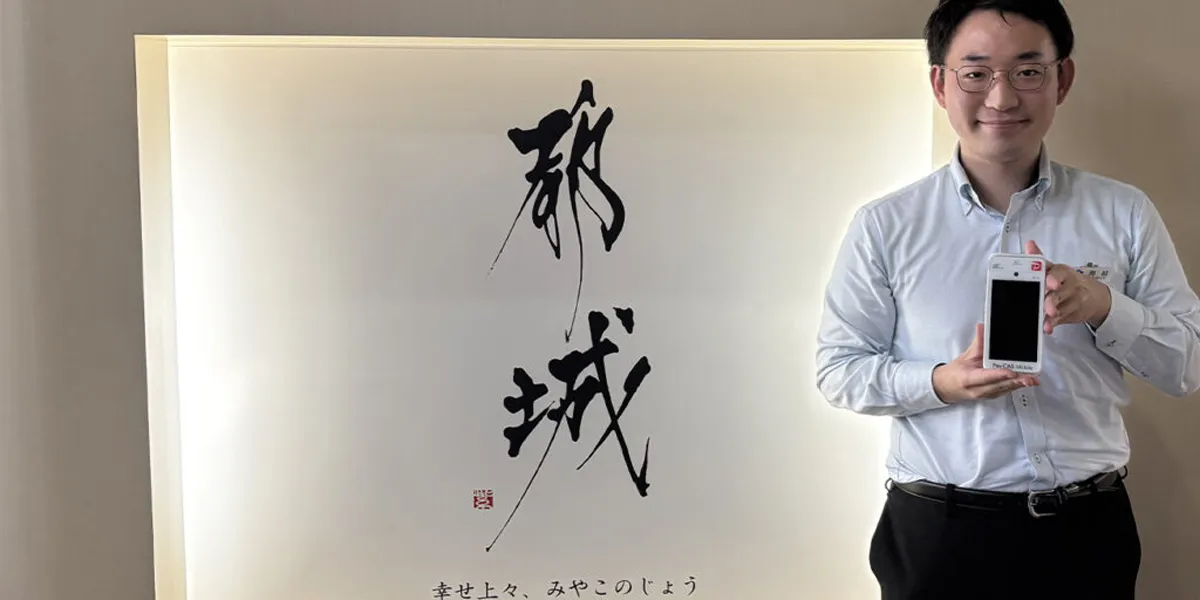 都城
幸せ上々、みやこのじょう
PayCAS Mobile